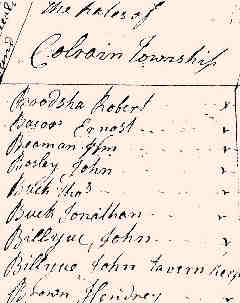 The Rates of
Colrain Township
Broodsha Robert
Bacoos Ernost
Beaman Wm
Bosley, John
Buck Thos
Buck Jonathan
Billyue, John
Billyue, John Tavern Keep
Brown, Hendrey